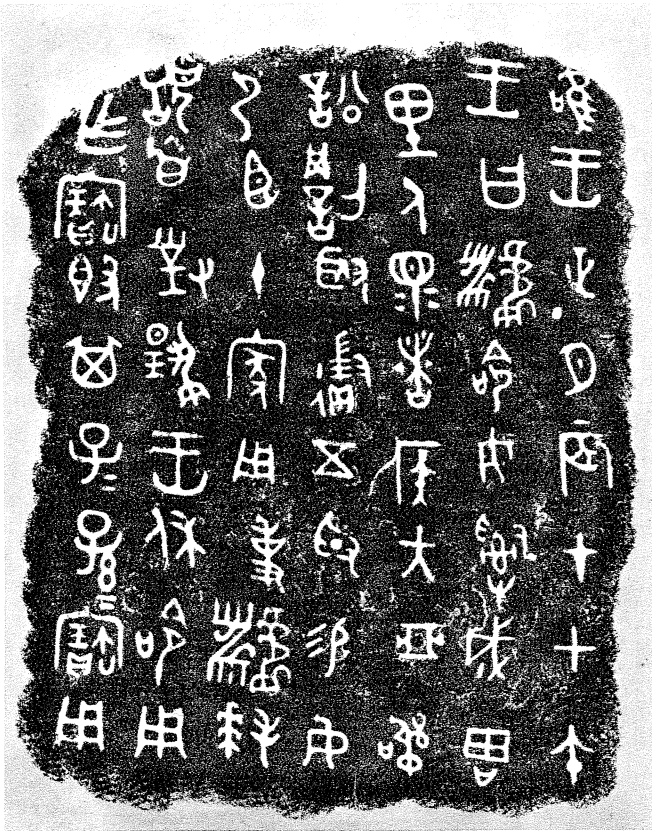 唯王正月辰才甲午
王曰命女𤔲成周
里人眔者侯大亞訊
訟罰取徵五寽易女
尸臣十家用事拜
𩒨首對揚王休命用
乍寶𣪘其子子孫孫寶用